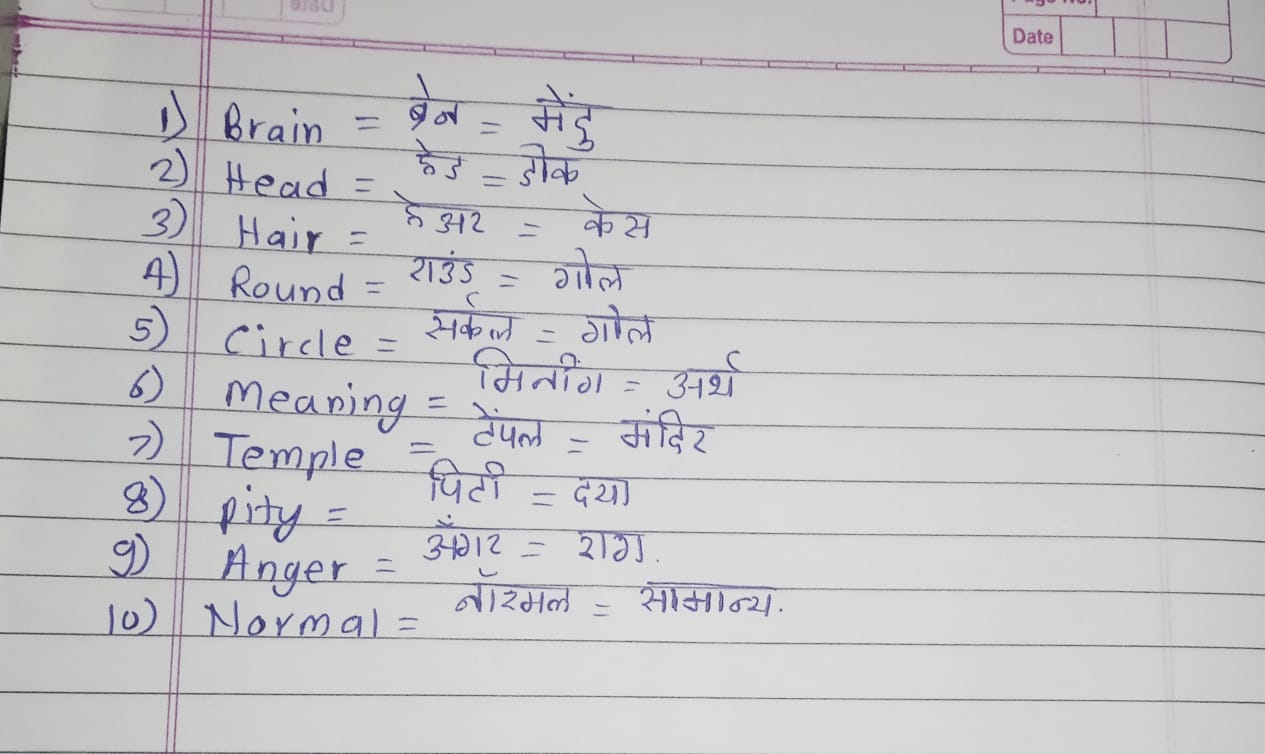 Date
1) Brain = ब्रेन = मेंदु
2) Head = हेड = डोके
3) Hair = हेअर = केस
4) Round = राउंड = गोल
5) Circle = सर्कल = गोल
6) Meaning = मिनींग = अर्थ
7) Temple = टेंपल = मंदिर
8) Pity = पिटी = दया
9) Anger = अँगर = राग.
10) Normal = नॉरमल = सामान्य.